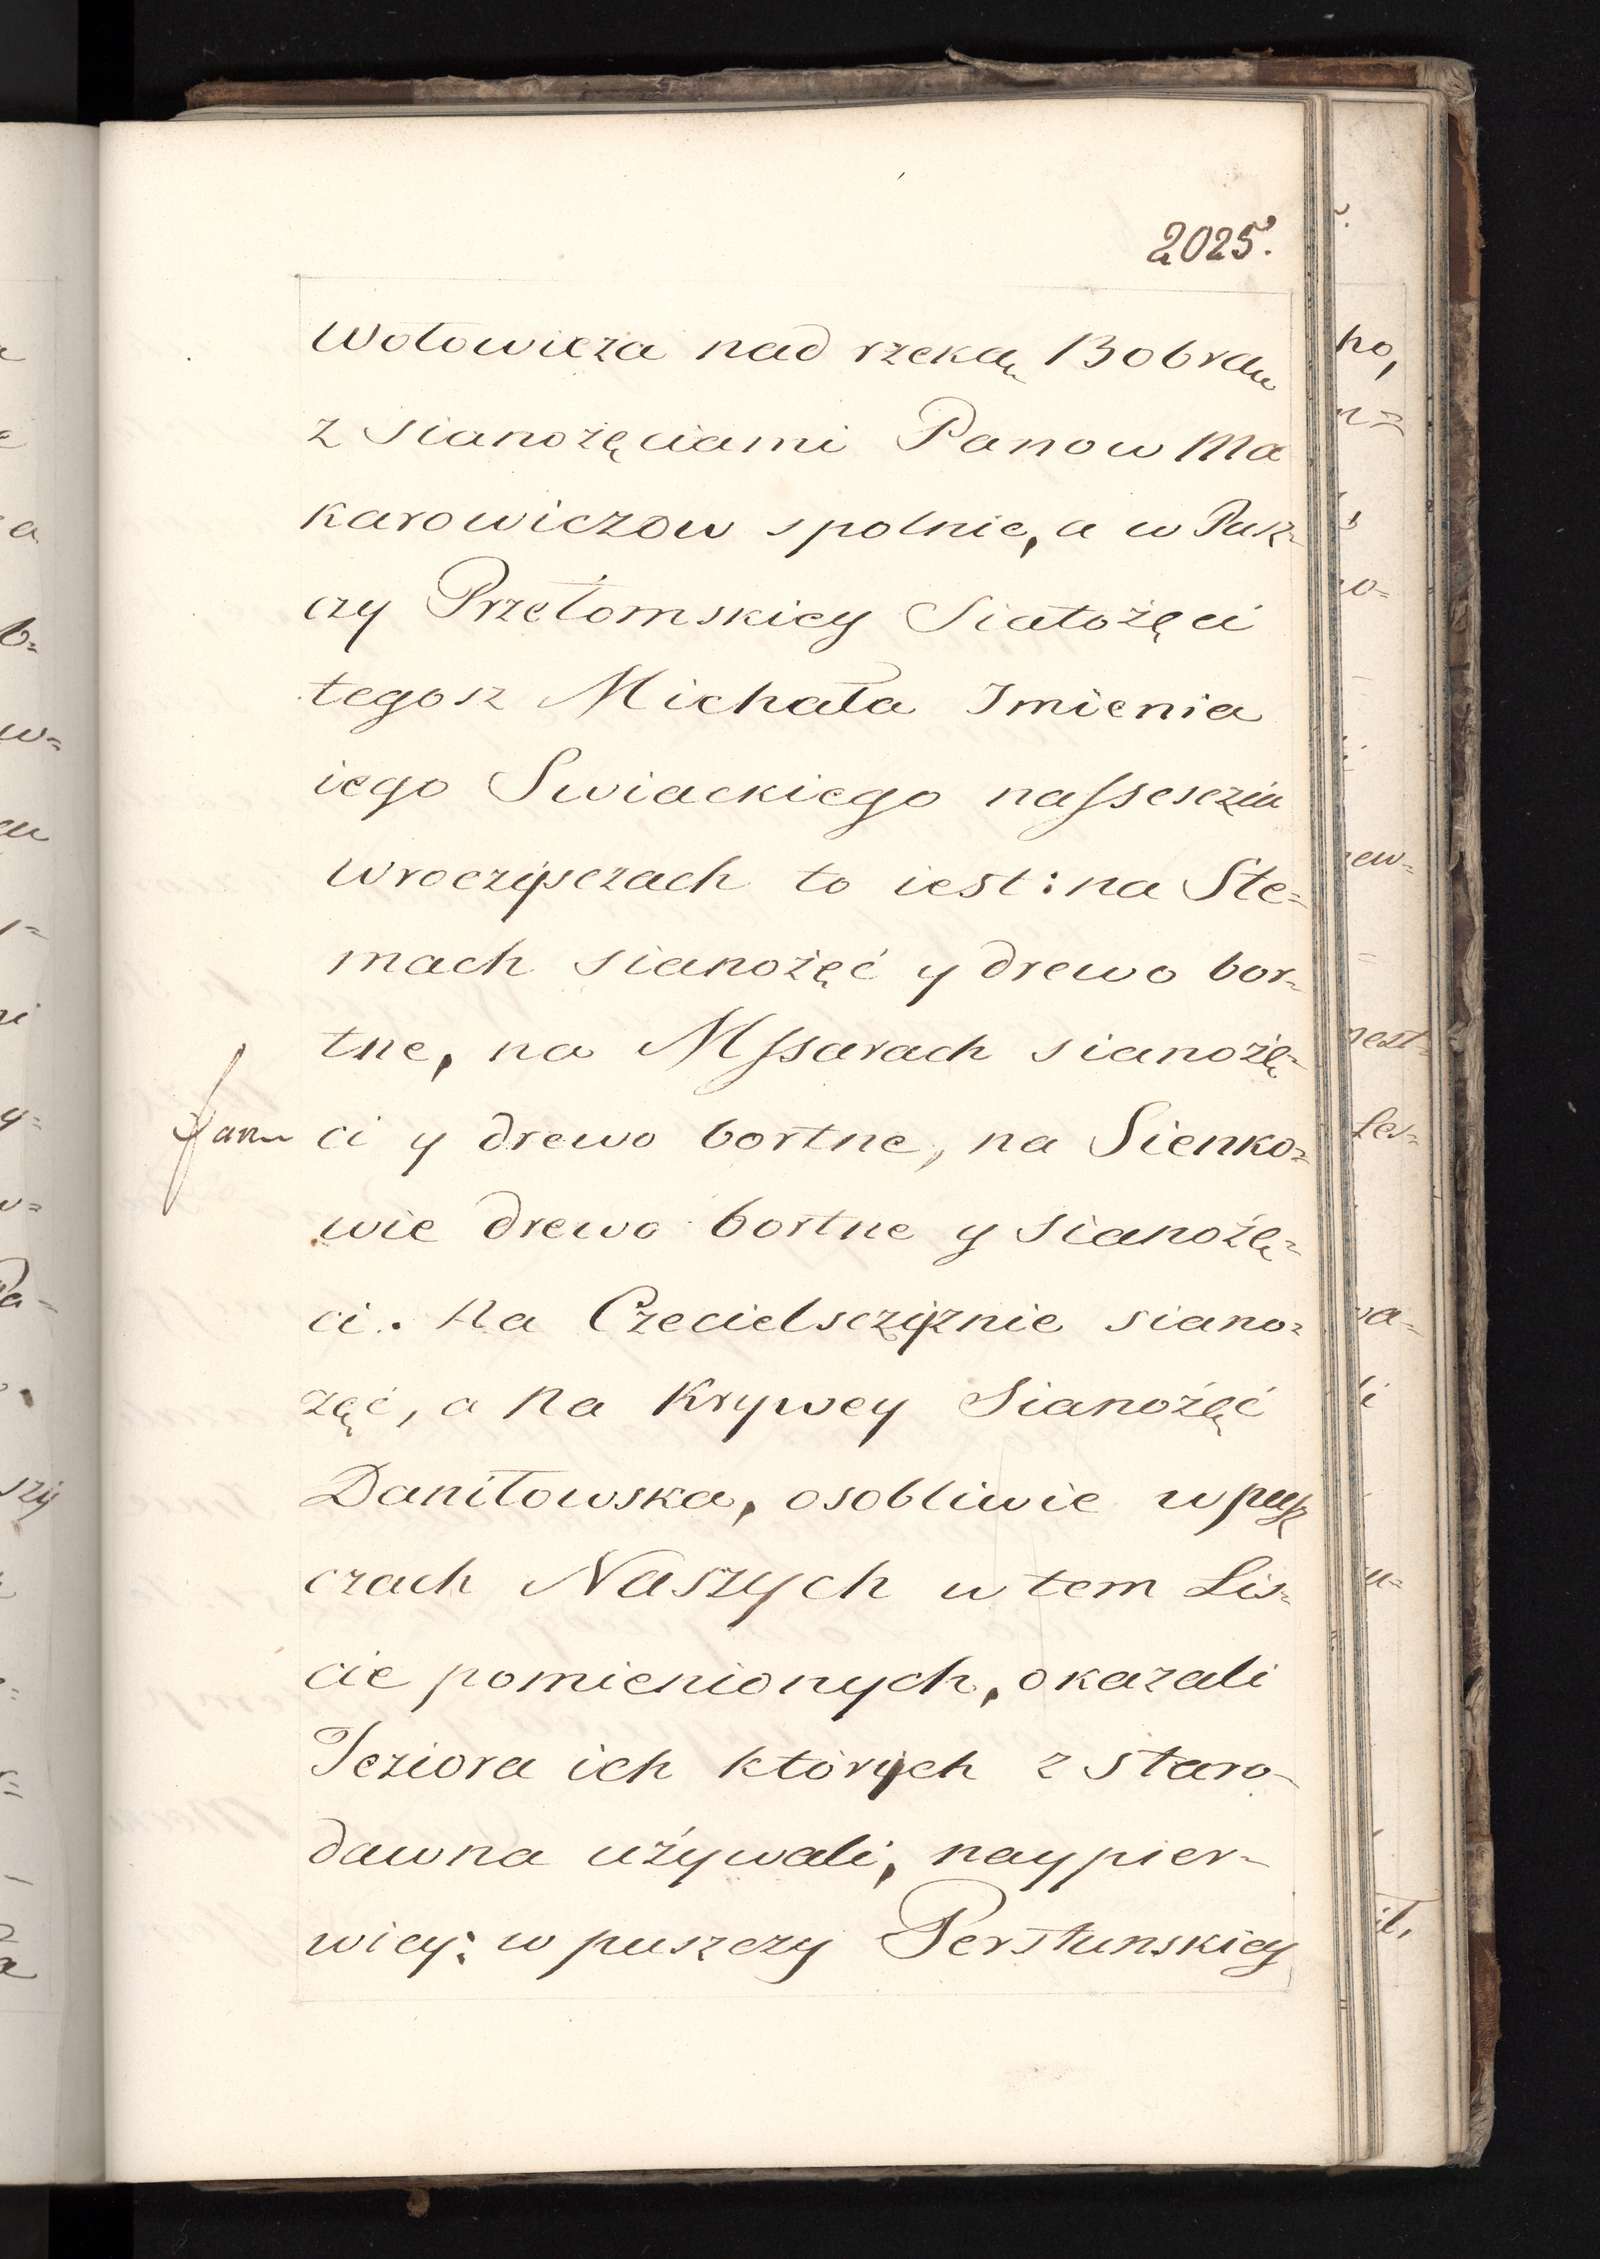 2025.
Wołowicza nad rzeką Bobrą
z sianożęciami Panow Ma
karowiczow spolnie, a w Pusz-
czy Przełomskiey Siatożęci
tegosz Michała Imienia
iego Swiackiego
wroczÿsczach to iest: na Ste-
mach sianożęć y drewo bor-
tne, na Mssarach sianożę-
ci y drewo bortne, na Sienko-
wie drewo bortne y sianożę-
ci. Na Czecielsczÿznie siano-
żęć, a na Krywey Sianożęć
Daniłowska, osobliwie w pusz
czach Naszych w tem Lis-
cie pomienionych, okazali
Jeziora ich którÿch z staro-
dawna użÿwali, naypier-
wiey: w puszczy Perstunskiey